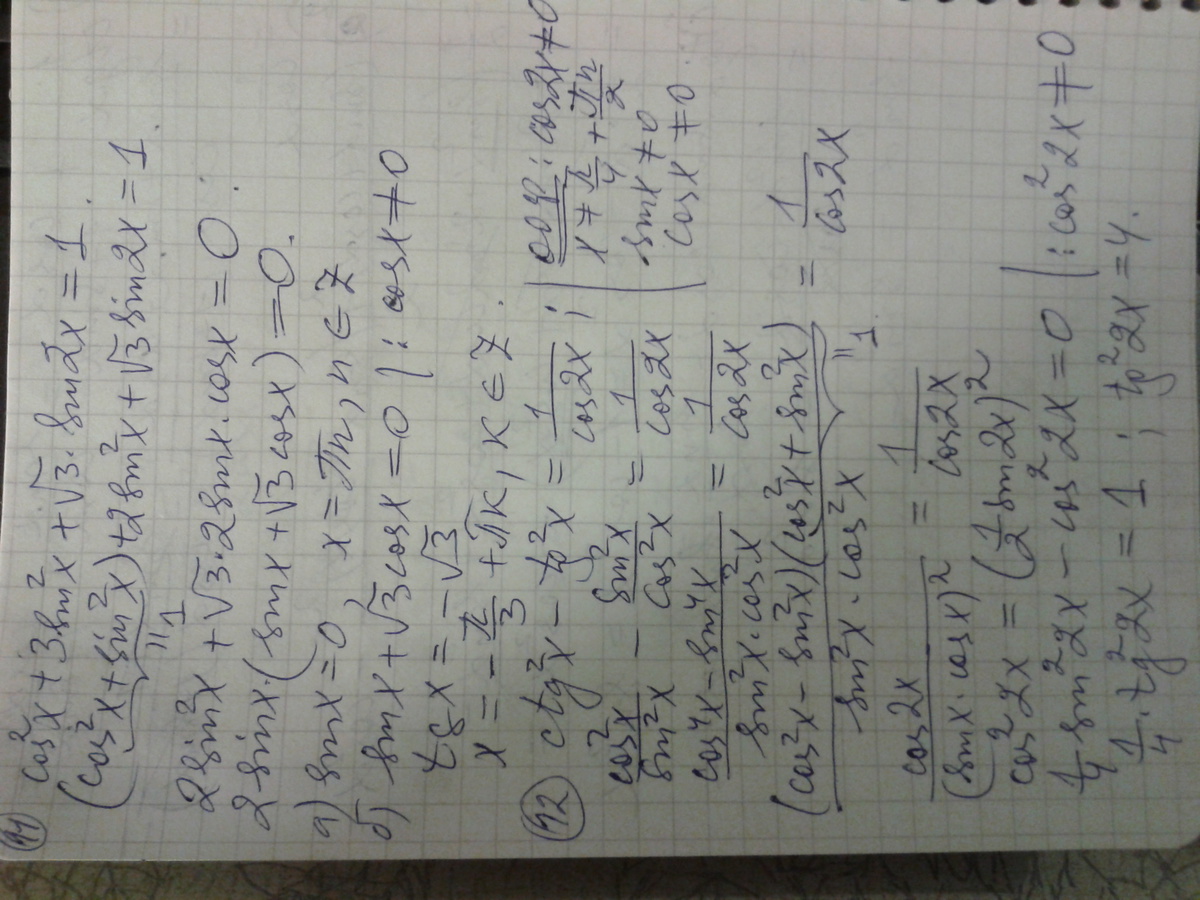 91) cos²x + 3sin²x + √3·sin2x = 1.
(cos²x + sin²x) + 2sin²x + √3 sin2x = 1.
"1
2sin²x + √3·2sinx·cosx = 0.
2sinx·(sinx + √3 cosx) = 0.
а) sinx = 0, x = πn, n ∈ Z
б) sinx + √3 cosx = 0 | : cosx ≠ 0
tgx = -√3
x = -π/3 + πk, k ∈ Z.
92) ctg²x - tg²x = 1/cos2x ;
ООУ: cos2x ≠ 0
x ≠ π/4 + πn/2
sinx ≠ 0
cosx ≠ 0
cos²x/sin²x - sin²x/cos²x = 1/cos2x
(cos⁴x - sin⁴x)/(sin²x·cos²x) = 1/cos2x
(cos²x - sin²x)(cos²x + sin²x)/(sin²x·cos²x) = 1/cos2x
"1
cos2x/(sinx·cosx)² = 1/cos2x
cos²2x = (1/2 sin2x)²
1/4 sin²2x - cos²2x = 0 | : cos²2x ≠ 0
1/4·tg²2x = 1 ; tg²2x = 4.